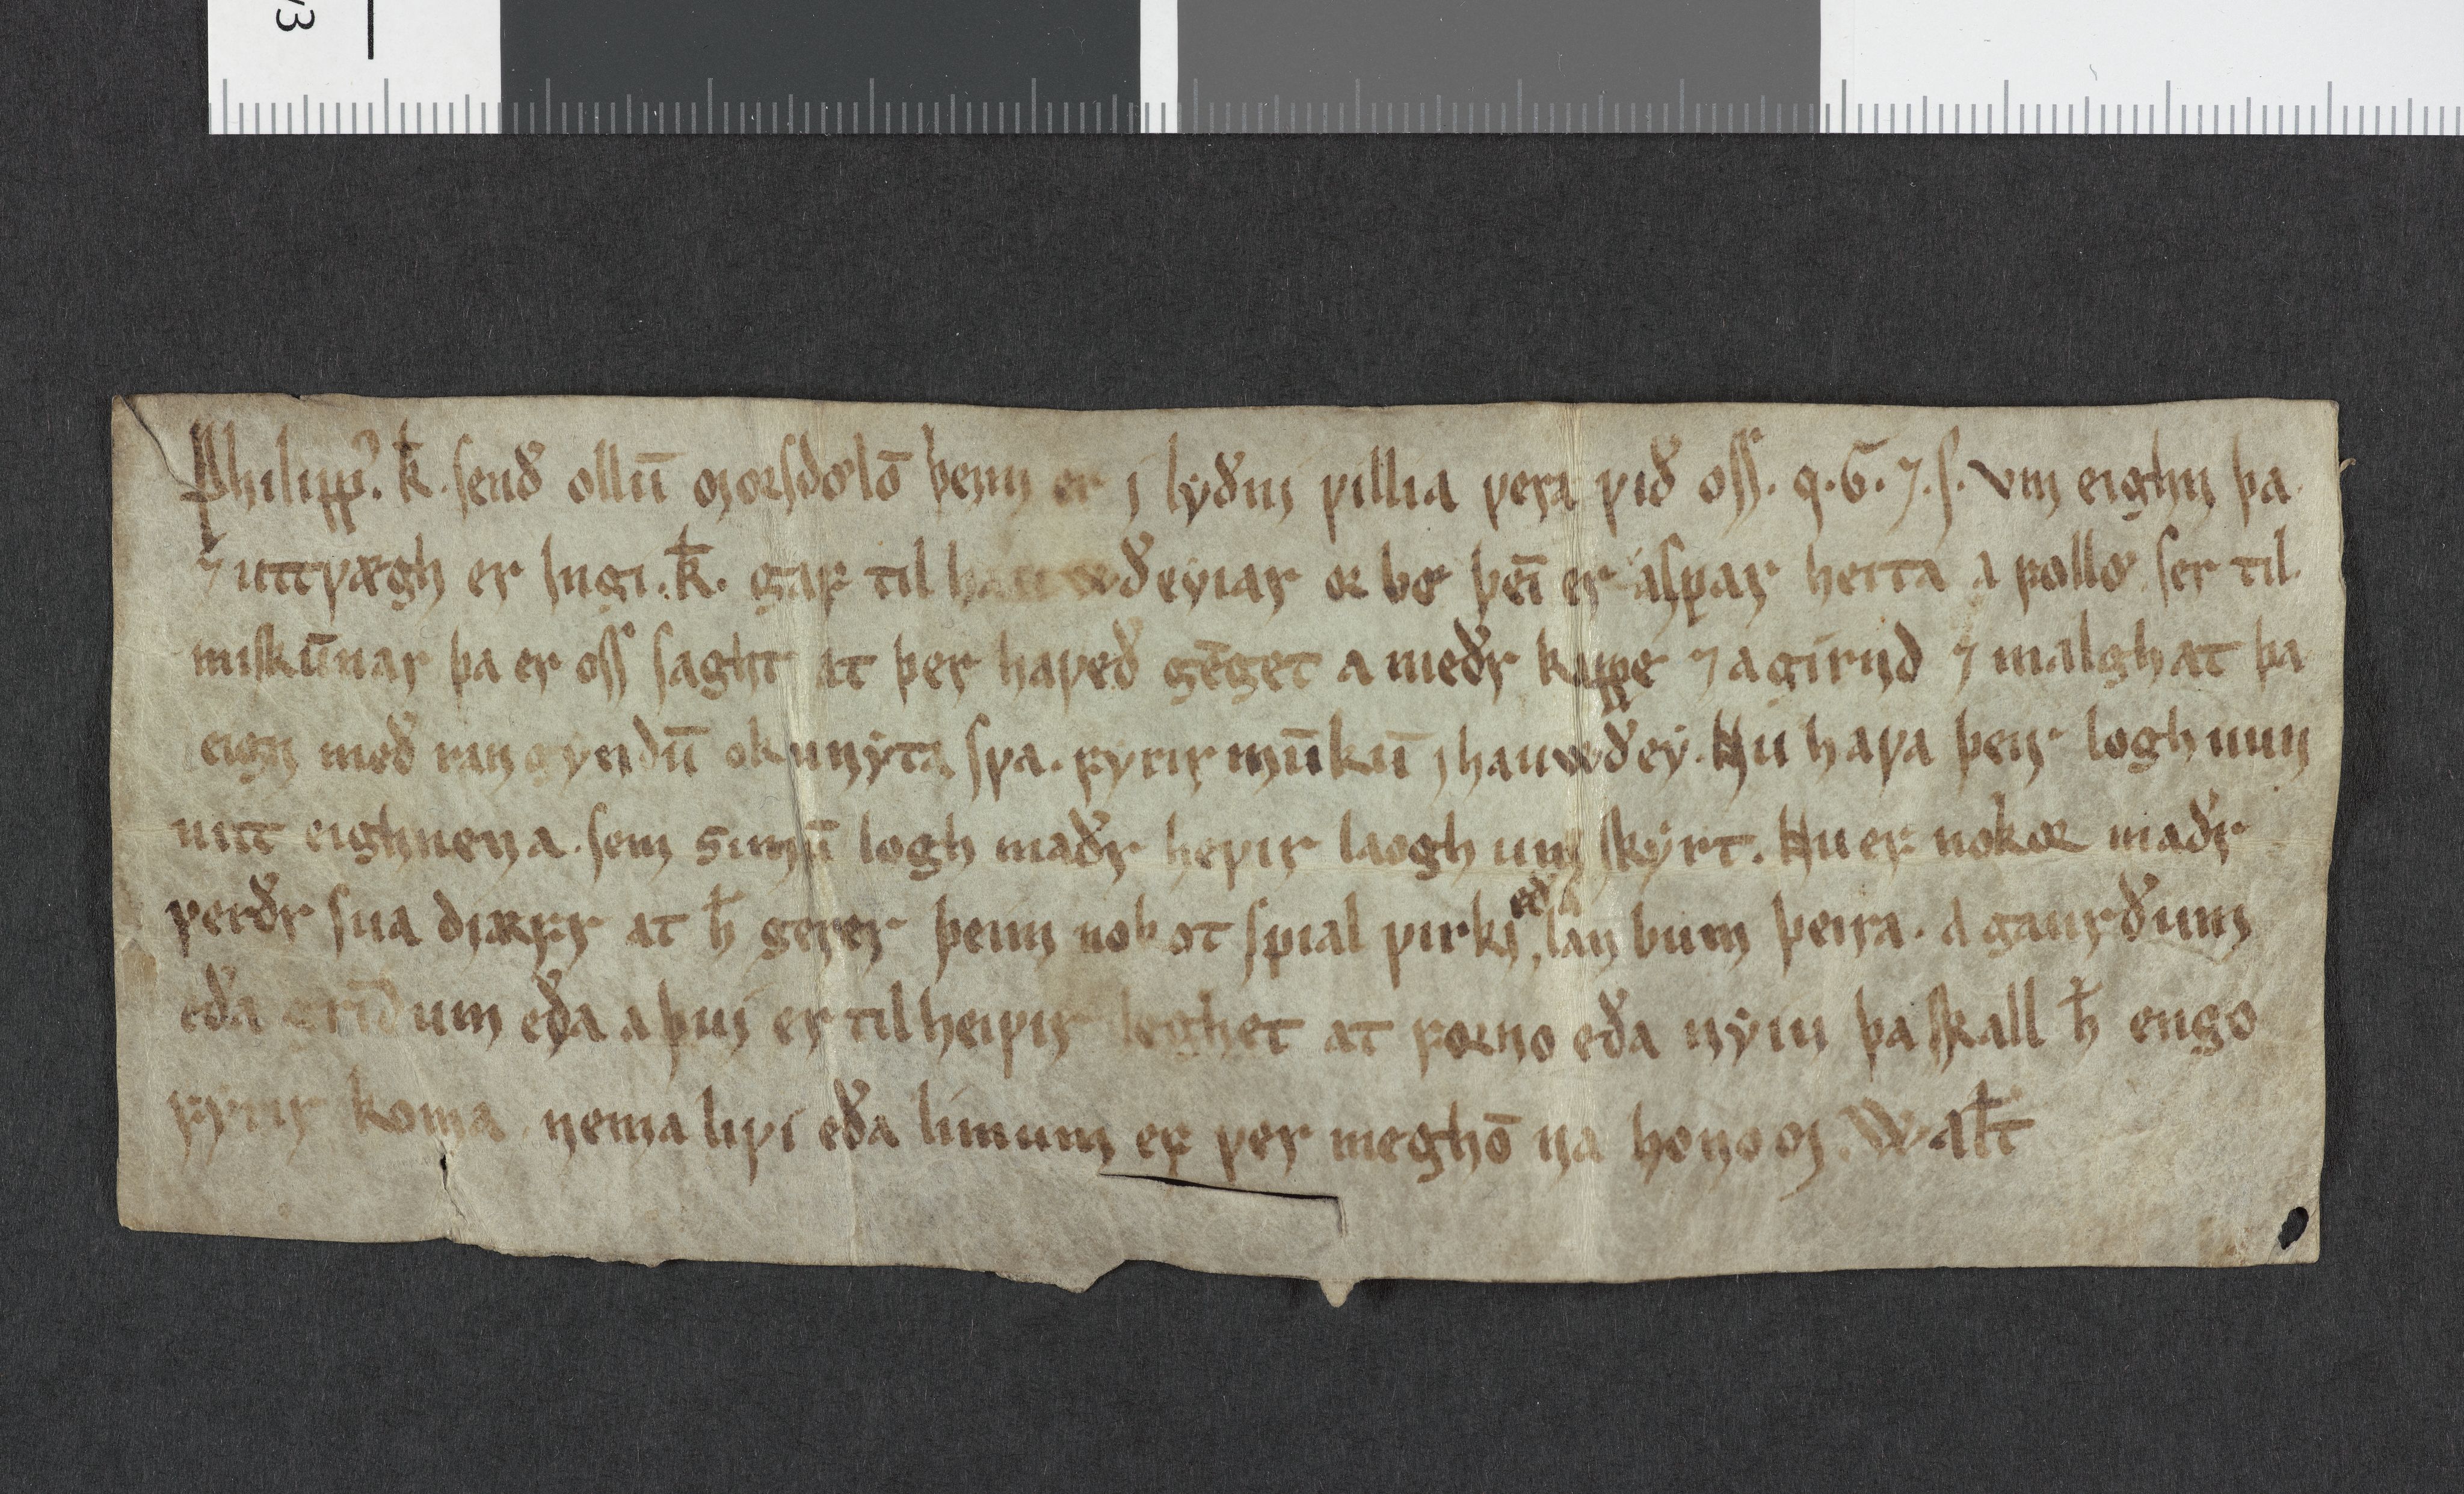 Philipp᷒. k̄. senđ ollū orsdølō þeim er i lyđni ƿillia ƿera ƿiđ oss. q. G. ⁊. s. vm eighn þa.
⁊ uttƿægh er Ingi. k̄. gaꝼ til hauƿđeyiar or bø þeī er asƿar heita a ꝼollo ser til
miskūnar þa er oss saght at þer haƿeđ gēget a međr kappe ⁊ agirnd ⁊ malgh at þa
eign međ rangyndū ok unyta sƿa. ꝼyrir mūkū i hauƿđey. Nu haƿa þeir logh unn
nitt eighnena. sem simū logh mađr heƿir laogh um skyrt. Nu eꝼ nokor mađr
ƿerđr sua diærꝼr at h̄ gerer þeim nokot sƿial ƿirki, eđa lan bum þeira. a gaurđum
eđa grīdum eđa a þui er til heiƿir leghet at ꝼorno eđa nyiu þa skall h̄ engo
ꝼyrir koma nema liƿi eđa limum eꝼ ƿer meghō na honom. Wal̄t